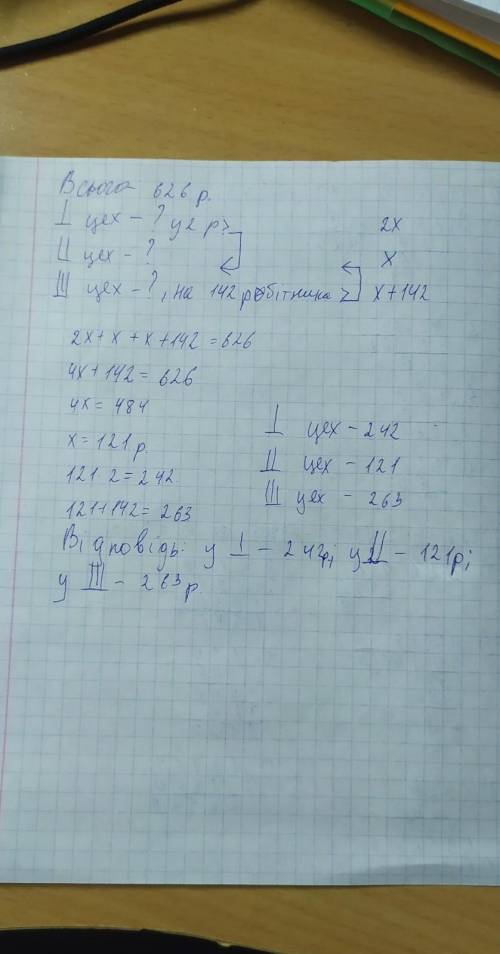 Всього 626 р.
I цех - ? у 2 р > 2x
II цех - ? x
III цех - ?, на 142 робітника > x+142
2x+x+x+142=626
4x+142=626
4x=484
x=121 р
121·2=242
121+142=263
I цех - 242
II цех - 121
III цех - 263
Відповідь: у I - 242р; у II - 121р;
у III - 263 р.